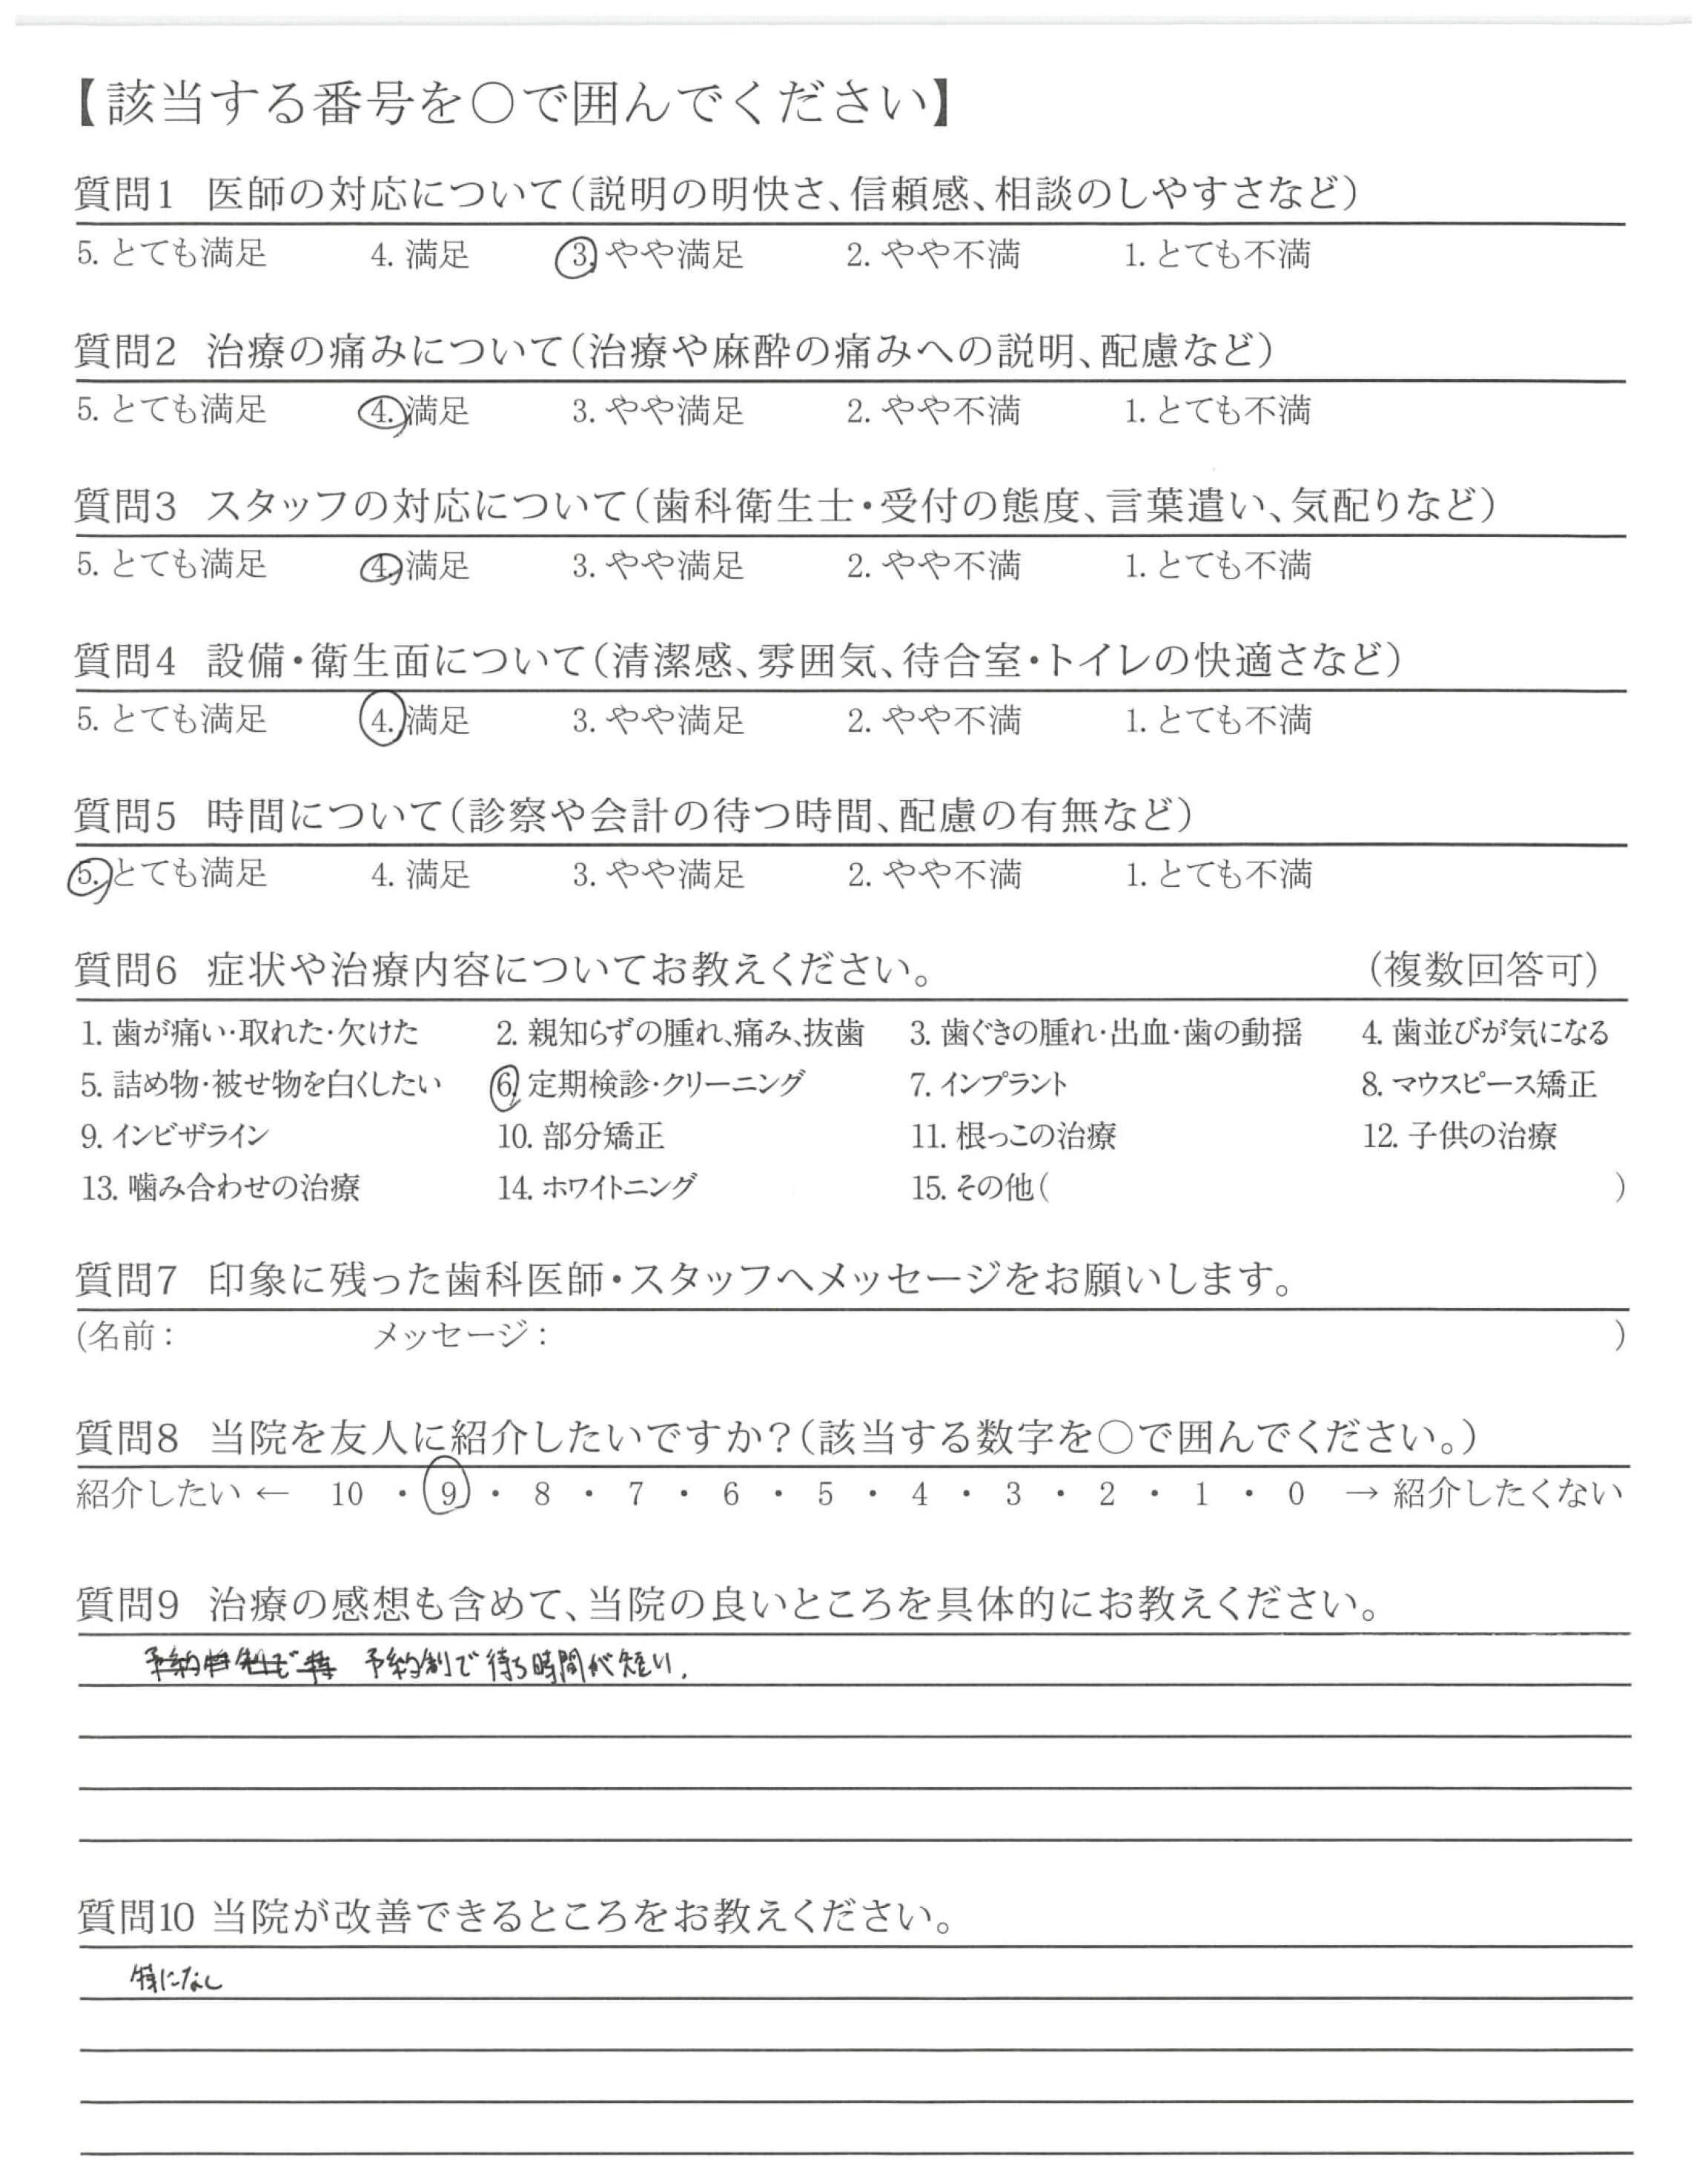 【該当する番号を○で囲んでください】
質問1 医師の対応について(説明の明快さ、信頼感、相談のしやすさなど)
5. とても満足 4. 満足 3. やや満足 2. やや不満 1. とても不満
質問2 治療の痛みについて(治療や麻酔の痛みへの説明、配慮など)
5. とても満足 4. 満足 3. やや満足 2. やや不満 1. とても不満
質問3 スタッフの対応について(歯科衛生士・受付の態度、言葉遣い、気配りなど)
5. とても満足 4. 満足 3. やや満足 2. やや不満 1. とても不満
質問4 設備・衛生面について(清潔感、雰囲気、待合室・トイレの快適さなど)
5. とても満足 4. 満足 3. やや満足 2. やや不満 1. とても不満
質問5 時間について(診察や会計の待つ時間、配慮の有無など)
5. とても満足 4. 満足 3. やや満足 2. やや不満 1. とても不満
質問6 症状や治療内容についてお教えください。 (複数回答可)
1. 歯が痛い・取れた・欠けた 2. 親知らずの腫れ、痛み、抜歯 3. 歯ぐきの腫れ・出血・歯の動揺 4. 歯並びが気になる
5. 詰め物・被せ物を白くしたい 6. 定期検診・クリーニング 7. インプラント 8. マウスピース矯正
9. インビザライン 10. 部分矯正 11. 根っこの治療 12. 子供の治療
13. 噛み合わせの治療 14. ホワイトニング 15. その他( )
質問7 印象に残った歯科医師・スタッフへメッセージをお願いします。
(名前: メッセージ: )
質問8 当院を友人に紹介したいですか?(該当する数字を○で囲んでください。)
紹介したい ← 10 ・ 9 ・ 8 ・ 7 ・ 6 ・ 5 ・ 4 ・ 3 ・ 2 ・ 1 ・ 0 → 紹介したくない
質問9 治療の感想も含めて、当院の良いところを具体的にお教えください。
予約制で待ち時間が短い.
質問10 当院が改善できるところをお教えください。
特になし